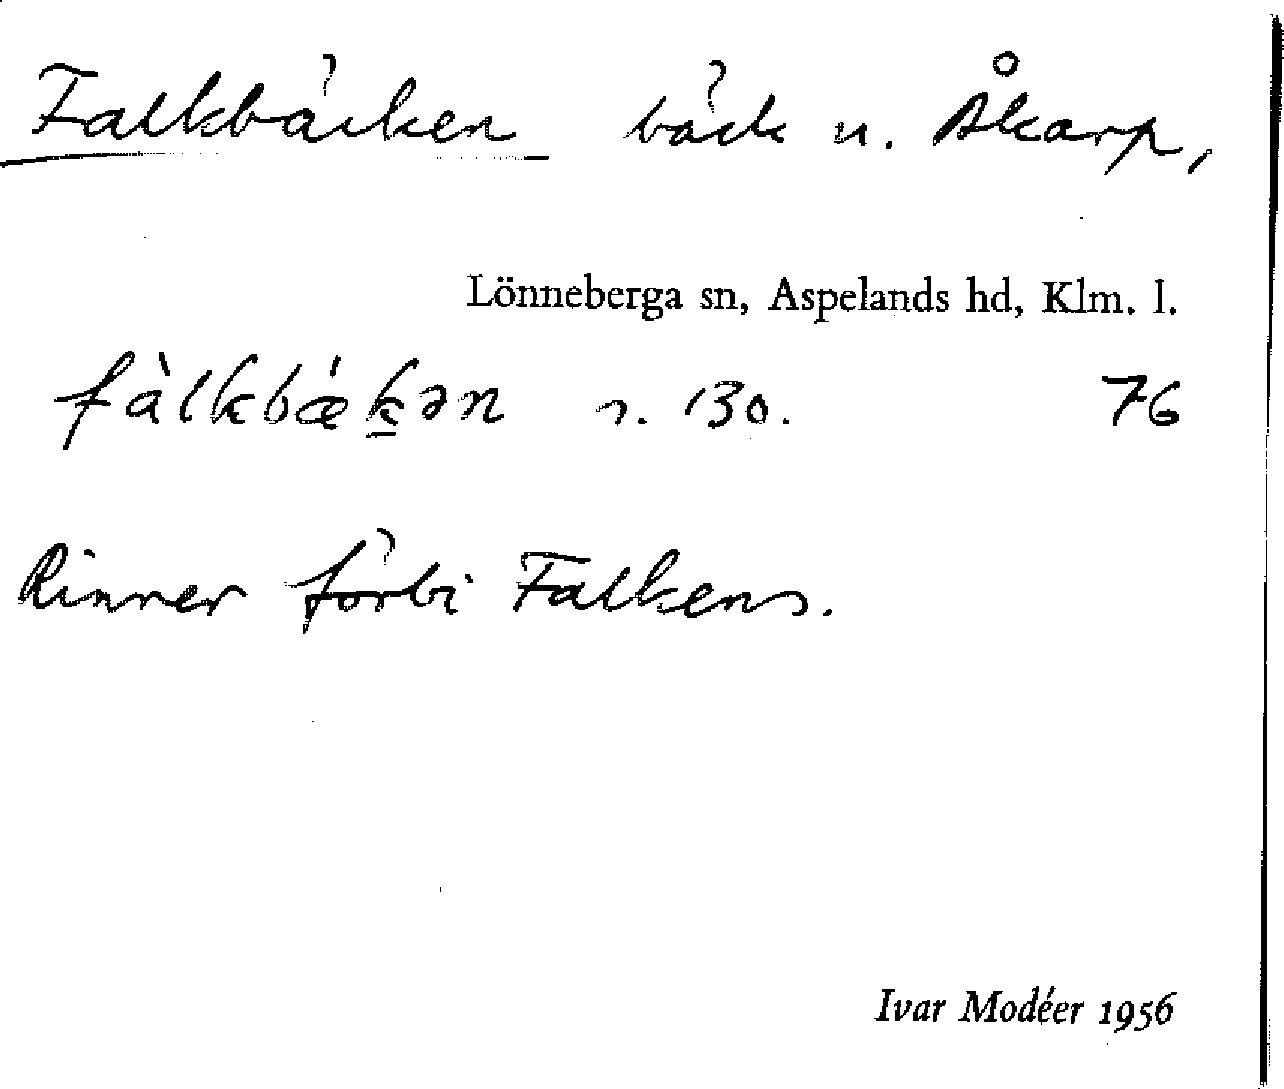 Falkbäcken bäck u. Åkarp,
Lönneberga sn, Aspelands hd, Klm. l.
fàlkbǽk̲ən s. 130. 76
Rinner förbi Falkens.
Ivar Modéer 1956